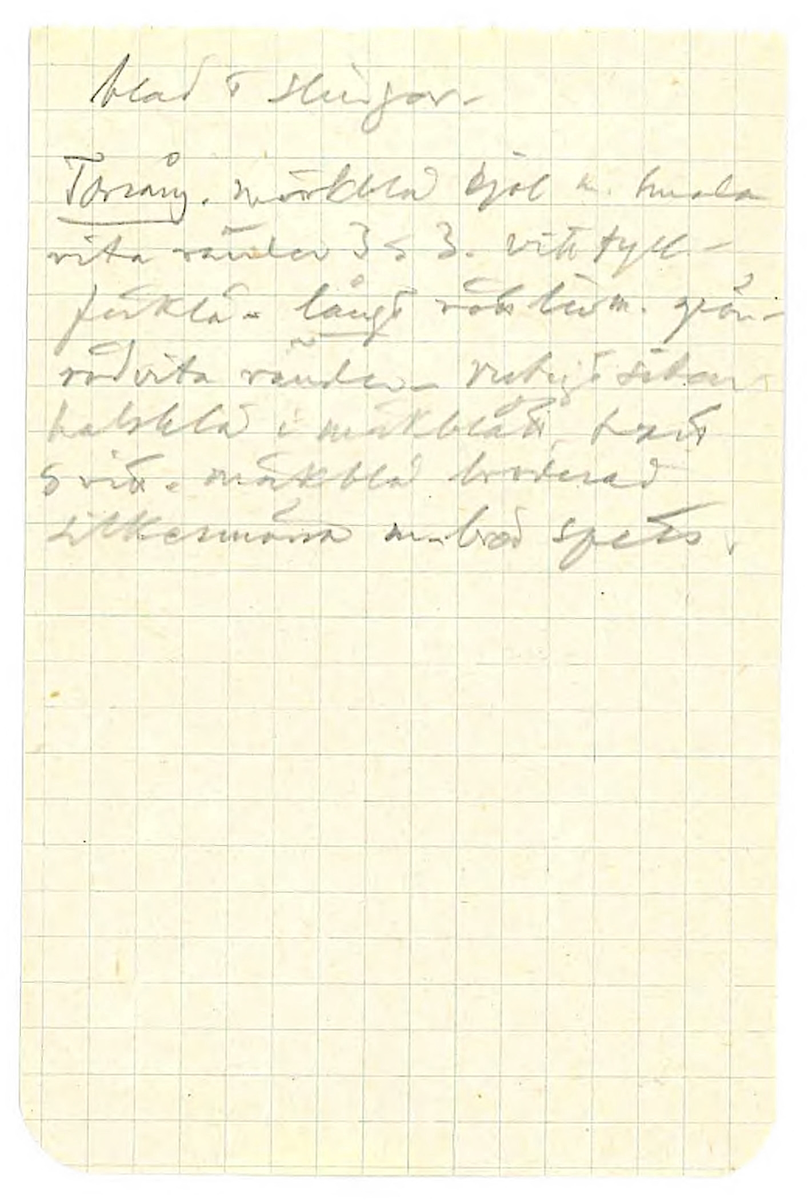 blad & slingor -
Torsång. mörkblå kjol m. smala
vita ränder 3 & 3. vitt tyll-
förklä - långt rött liv m. grön-
rödvita ränder - rutigt siden
halsklä i mörkblått,
& vitt. mörkblå broderad
silkesmössa m. bred spets.